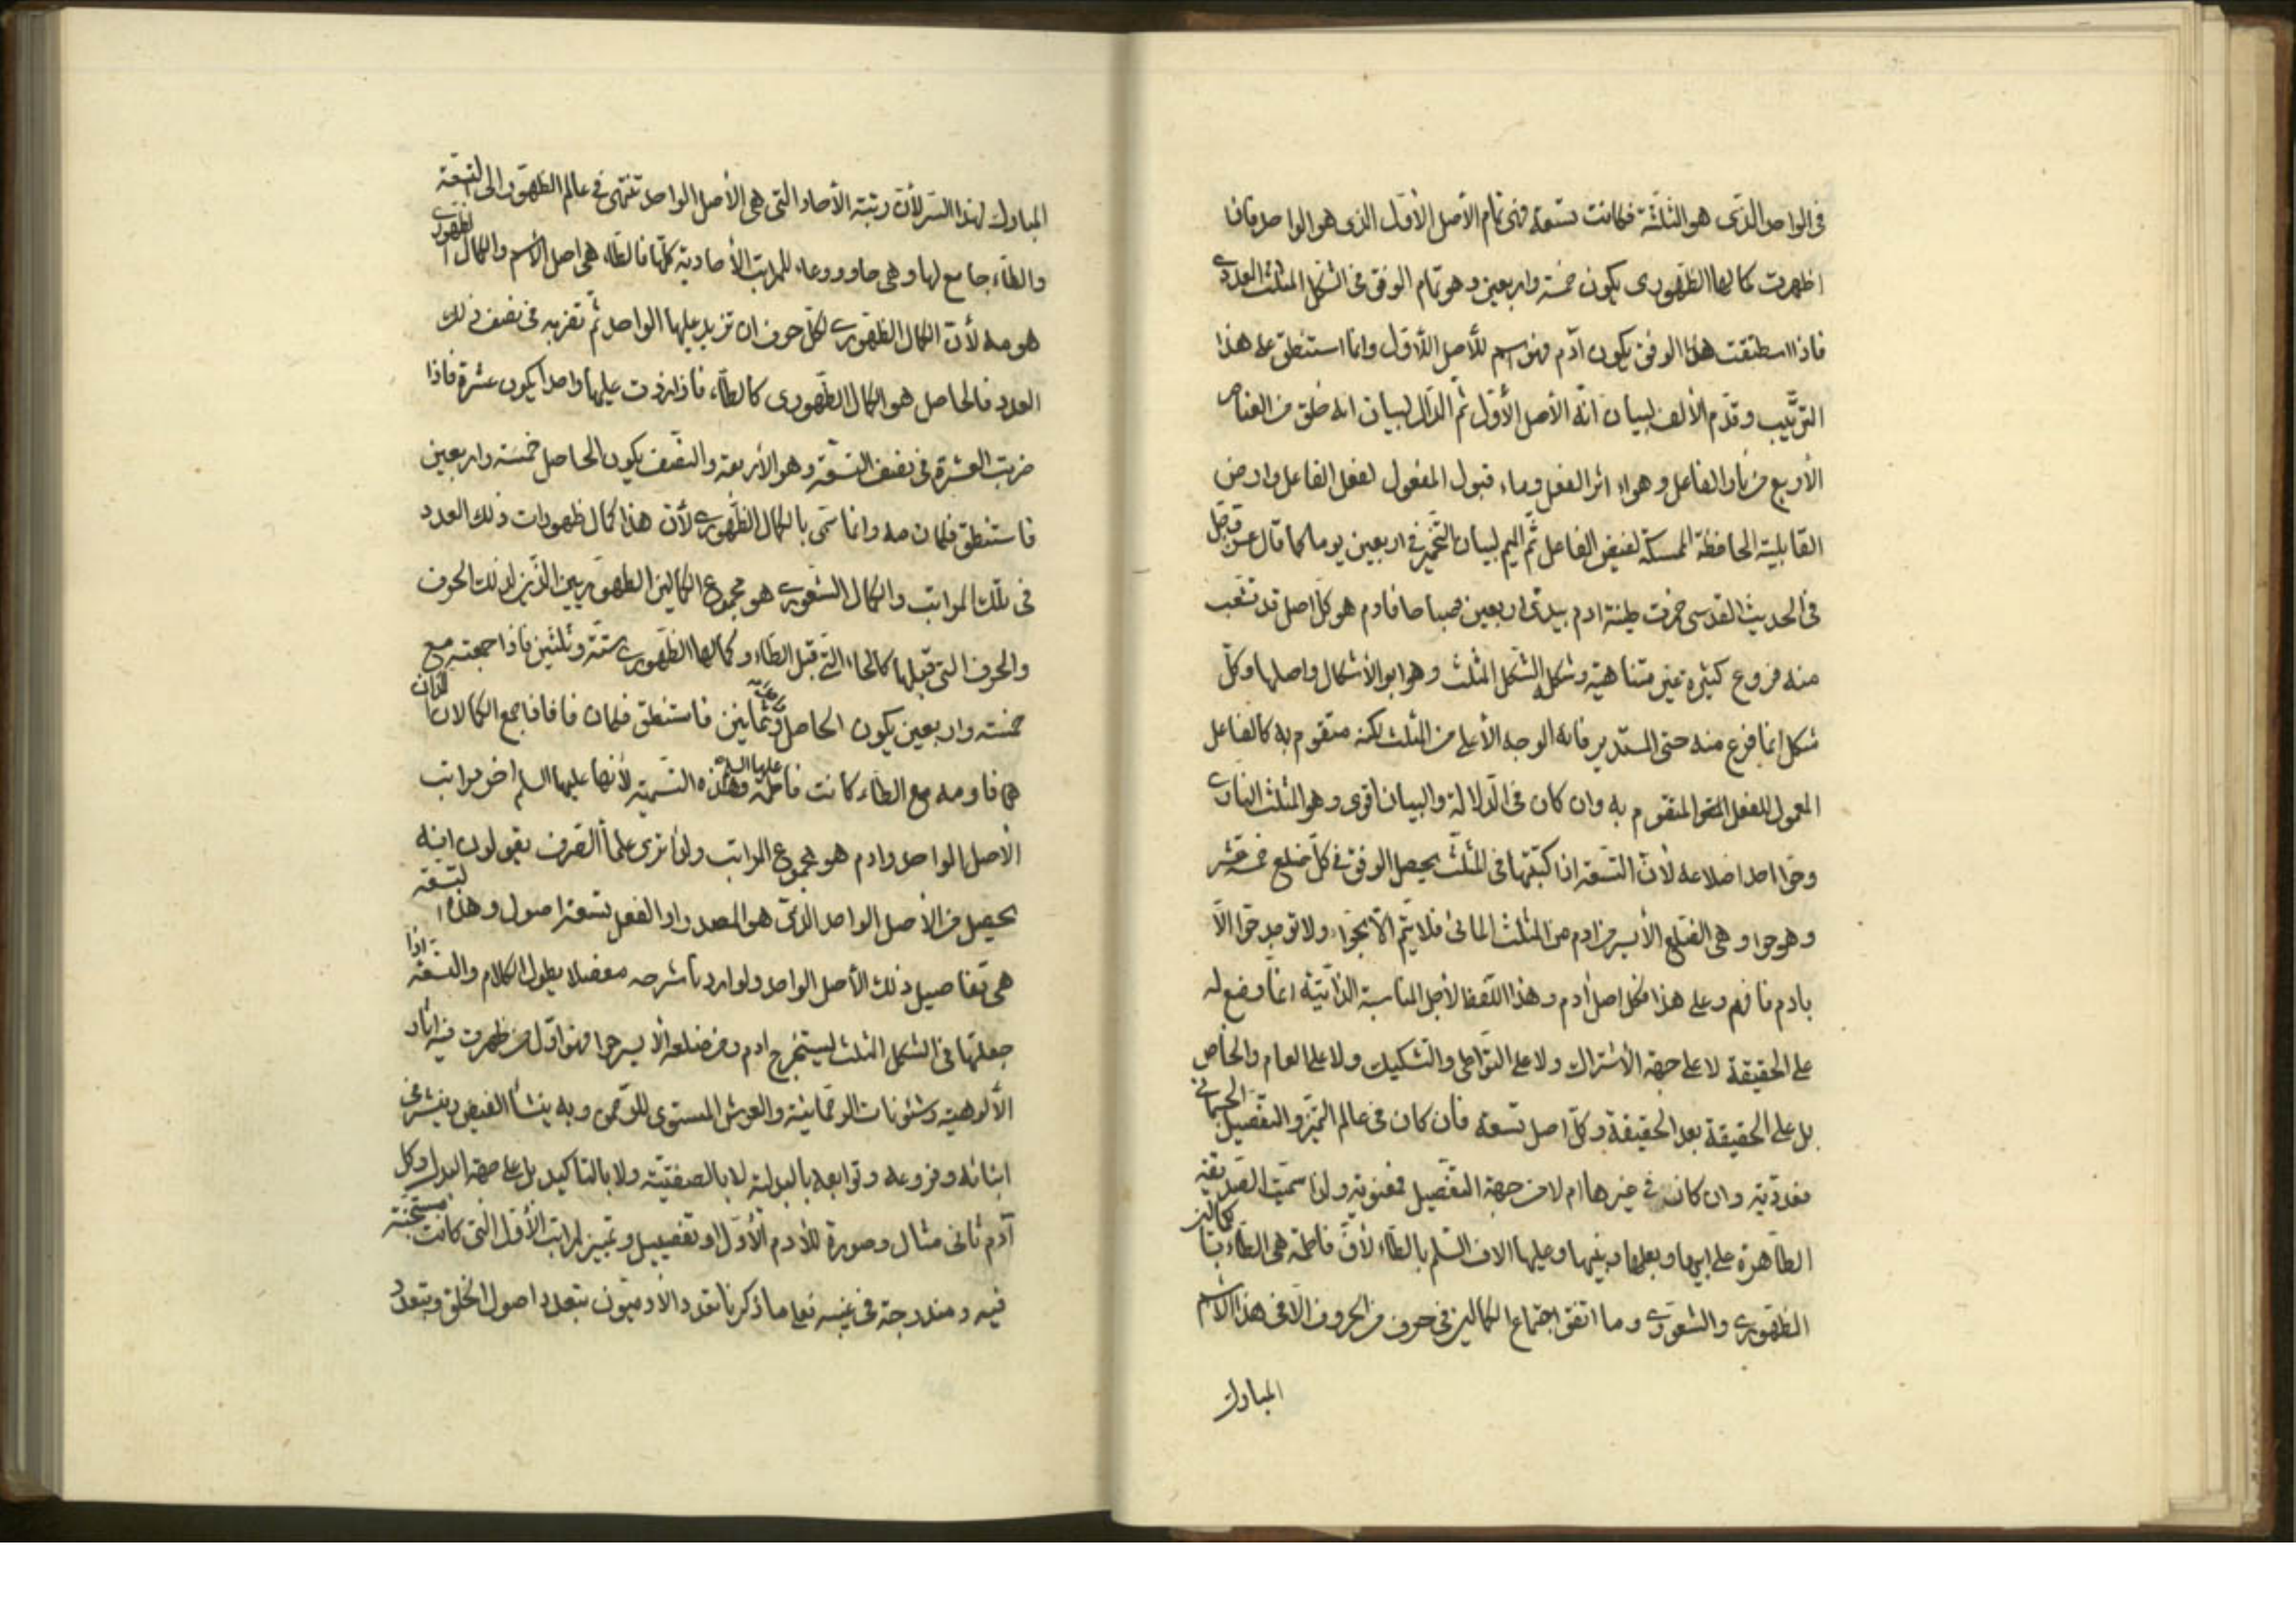 فى الواحد الذى هو الثلثة فكانت تسعة فهى تمام الأصل الأول الذى هو الواحد فان
اظهرت كمالها الظهورى يكون خمسة واربعين وهو تمام الوفق فى الشكل المثلث العددى
فاذا اسطنقت هذا الوفق يكون آدم فهو اسم للأصل الأول وانما استنطق على هذا
الترتيب وقدم الألف لبيان انه الأصل الأول ثم الدال لبيان انه خلق من العناصر
الأربع من نار الفاعل وهواء اثر الفعل وماء قبول المفعول لفعل الفاعل وارض
القابلية الحافظة الممسكة لفيض الفاعل ثم الميم لبيان التخمير فى اربعين يوما كما قال عز وجل
فى الحديث القدسى خمرت طينة ادم بيدى اربعين صباحا فادم هو كل اصل قد تشعب
منه فروع كثيرة غير متناهية وشكله الشكل المثلث وهو ابو الأشكال واصلها وكل
شكل انما فرع منه حتى المستدير فانه الوجه الأعلى من المثلث لكنه متقوم به كالفاعل
المعمول للفعل المتقوم به وان كان فى الدلالة والبيان اقوى وهو المثلث النارى
وحوا احد اضلاعه لأن التسعة اذا كتبتها فى المثلث يحصل الوفق فى كل ضلع خمسة عشر
وهو حوا وهى الضلع الأيسر من ادم من المثلث المائى فلا يتم الا بحوا ولا توجد حوا الا
بادم فافهم وعلى هذا فكل اصل آدم وهذا اللفظ لأجل المناسبة الذاتية انما وضع له
على الحقيقة لا على جهة الأشتراك ولا على التواطى والتشكيك ولا على العام والخاص
بل على الحقيقة بعد الحقيقة وكل اصل تسعة فأن كان فى عالم التميز والتفصيل الجسمانى
فعددية وان كان فى غيرها ام لا من جهة التفصيل فمعنوية ولذا سميت الصديقة
الطاهرة على ابيها وبعلها وبنيها وعليها الاف السلم بالطاء لأن فاطمة هى الطاء بتا كمالين
الظهورى والشعورى وما اتفق اجتماع الكمالين فى حرف من الحروف الا فى هذا الأسم
المبارك
المبارك لهذا السر لأن رتبة الأحاد التى هى الأصل الواحد تنتهى فى عالم الظهور الى التسعة
والطاء جامع لها وهى حاو ووعاء للمراتب الأحادية كلها فالطاء هى اصل الأسم والكمال الظهورى
هو مه لأن الكمال الظهورى لكل حرف ان تزيد عليها الواحد ثم تضربه فى نصف ذلك
العدد فالحاصل هو الكمال الظهورى كالطاء فاذا زدت عليها واحدا يكون عشرة فاذا
ضربت العشرة فى نصف التسعة وهو الأربعة والنصف يكون الحاصل خمسة واربعين
فاستنطق فكان مه وانما سمى بالكمال الظهورى لأن هذا كمال ظهورات ذلك العدد
فى تلك المراتب والكمال الشعورى هو مجموع الكمالين الظهوريين الذين لذلك الحرف
والحرف التى قبلها كالحاء التى قبل الطاء وكمالها الظهورى ستة وثلثين فاذا جمعته مع
خمسة واربعين يكون الحاصل وثمانين فاستنطق فكان فا فاذا جمع الكمالان اللذان
هما فا ومه مع الطاء كانت فاطمة عليها السلم وهذه التسمية لأنها عليها السلم اخر مراتب
الأصل الواحد وادم هو مجموع المراتب ولذا ترى علماء الصرف يقولون انه
يحصل من الأصل الواحد الذى هو المصدر او الفعل تسعة اصول وهذه التسعة
هى تفاصيل ذلك الأصل الواحد ولو اردنا شرحه مفصلا يطول الكلام والتسعة اذا
جعلتها فى الشكل المثلث ليستخرج ادم ومن ضلعه الأيسر حوا فهو اول من ظهرت فيه اثار
الألوهية وشئونات الرحمانية والعرش المستوى للرحمن وبه ينشأ الفيض وينشر فى
ابنائه وفروعه وتوابعه بالبدلية لا بالصفتية ولا بالتاكيد بل على جهة البدل وكل
آدم ثانى مثال وصورة للأدم الأول او تفصيل وتميز لمراتب الأول التى كانت مستجنة
فيه ومندرجة فى غيبه فعلى ما ذكرنا تعدد الأدميون بتعدد اصول الخلق وبتعدد